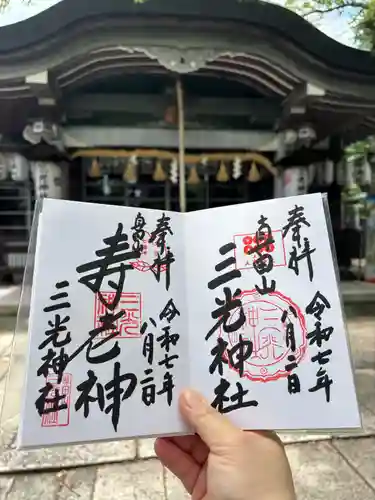 奉拝
令和七年
八月二日
真田山
三光神社
奉拝
令和七年
八月二日
真田山
寿老神
三光神社